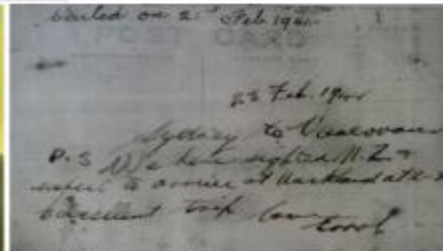 Sailed on 2 Feb. 19
POST CARD
23 Feb. 19
Sydney to Vancouver
P.S We have sighted N.Z +
expect to arrive at Auckland at 2-3
Excellent trip love
Errol